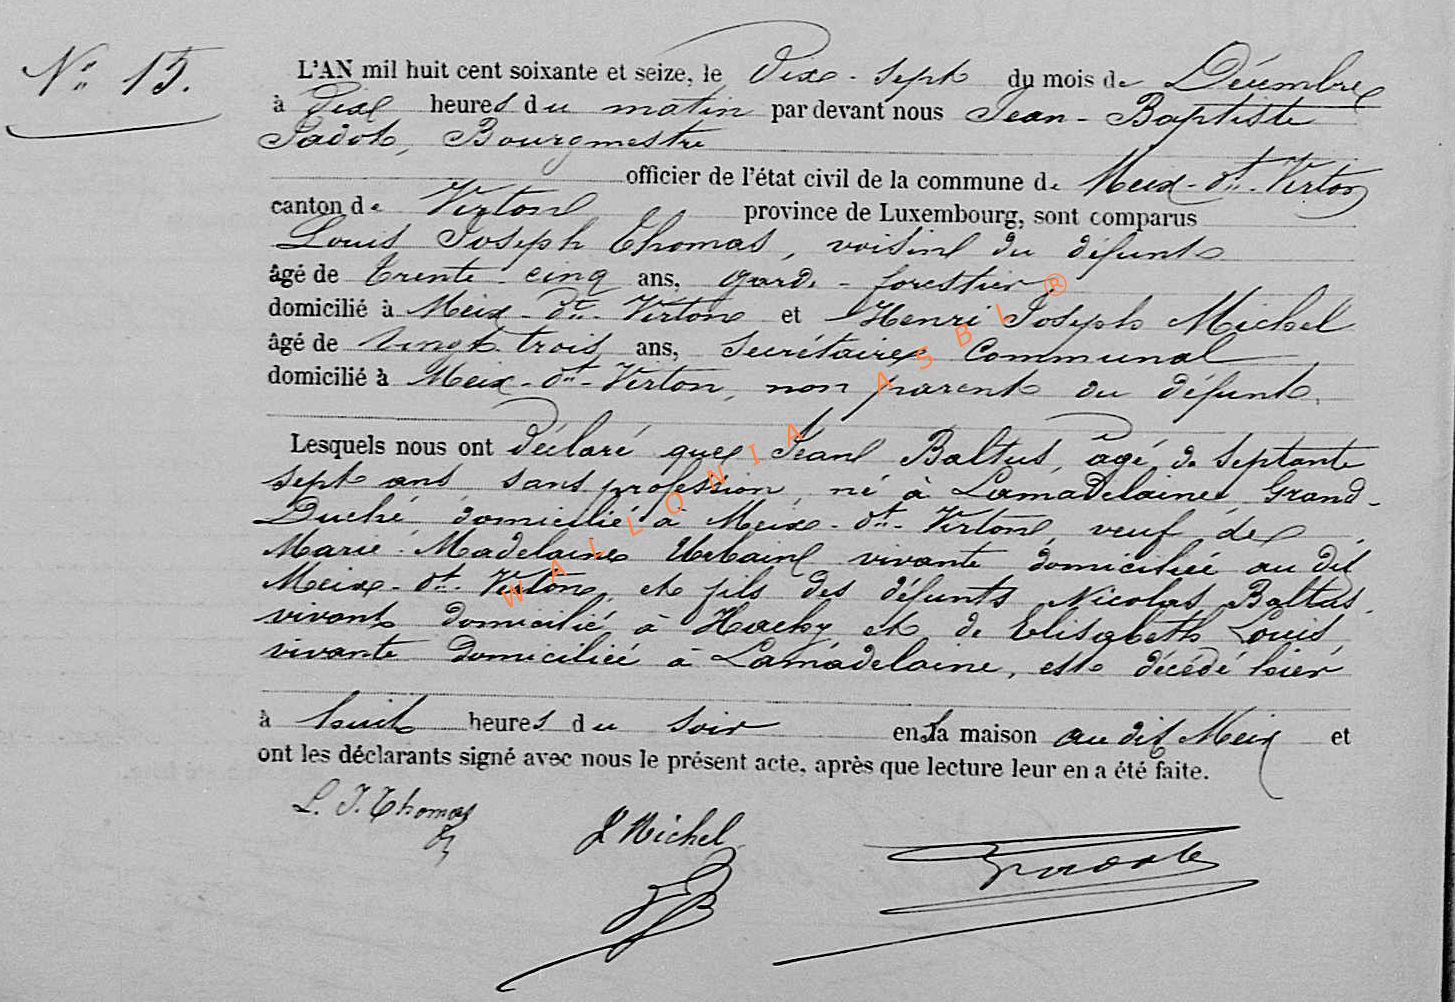 N° 15.
L'AN mil huit cent soixante et seize, le Dix-sept du mois de Décembre
à Dix heures du matin par devant nous Jean-Baptiste
Jadot, Bourgmestre
officier de l'état civil de la commune de Meix-dt-Virton
canton de Virton province de Luxembourg, sont comparus
Louis Joseph Thomas, voisin du défunt
âgé de trente-cinq ans, garde-forestier
domicilié à Meix-dt-Virton et Henri Joseph Michel
âgé de vingt-trois ans, Secrétaire Communal
domicilié à Meix-dt-Virton, non parent du défunt.
Lesquels nous ont déclaré que Jean Baltus, âgé de septante
sept ans, sans profession, né à Lamadelaine, Grand-
Duché, domicilié à Meix-dt-Virton, veuf de
Marie-Madelaine Urbain vivante domiciliée au dit
Meix-dt-Virton, et fils des défunts Nicolas Baltus,
vivant domicilié à Hachy et de Elisabeth Louis,
vivante domiciliée à Lamadelaine, est décédé hier
à huit heures du soir en sa maison au dit Meix et
ont les déclarants signé avec nous le présent acte, après que lecture leur en a été faite.
L. J. Thomas
H Michel
WALLONIA ASBL ®